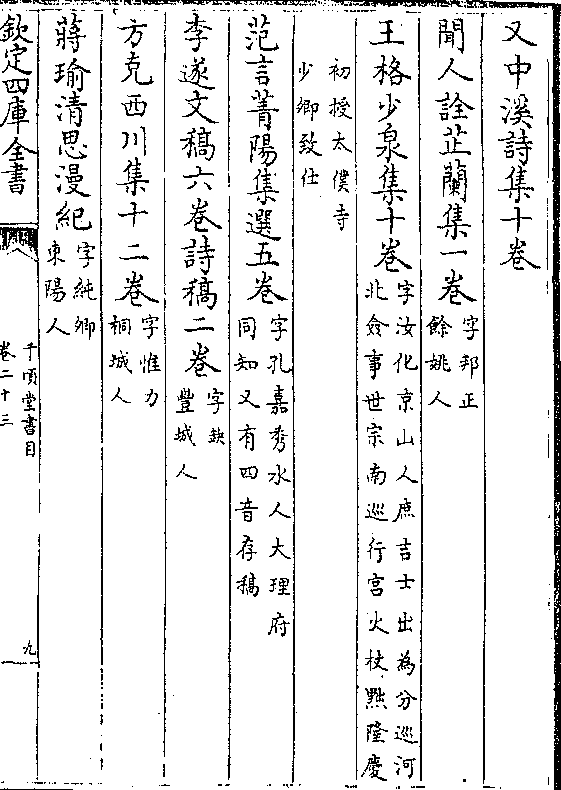 又中溪詩集十卷
聞人詮芷蘭集一卷 字邦正
餘姚人
王格少泉集十卷 字汝化京山人庶吉士出為分巡河
北僉事世宗南巡行宫火杖黜隆慶
初授太僕寺
少卿致仕
范言菁陽集選五卷 字孔嘉秀水人大理府
同知又有四音存稿
李遂文稿六卷詩稿二卷 字缺
豐城人
方克西川集十二卷 字惟力
桐城人
蔣瑜清思漫紀 字純卿
東陽人
欽定四庫全書
千頃堂書目
卷二十三
九